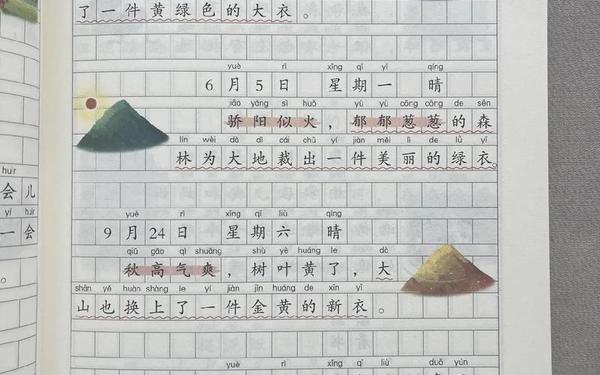 了一件黄绿色的大衣。
yuè rì xīng qī yī qíng
6月5日 星期一 晴
jiāo yáng sì huǒ yù yù cōng cōng de sēn
骄阳似火，郁郁葱葱的森
lín wèi dà dì cái chū yí jiàn měi lì de lǜ yī
林为大地裁出一件美丽的绿衣。
huìr
会儿
yí huìr
一会
yuè rì xīng qī liù qíng
9月24日 星期六 晴
qiū gāo qì shuǎng shù yè huáng le dà
秋高气爽，树叶黄了，大
shān yě huàn shàng le yí jiàn jīn huáng de xīn yī
山也换上了一件金黄的新衣。
yuè rì xīng qī liù duō yún